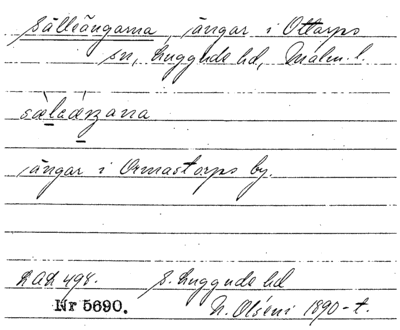 Sälleängarna, ängar i Ottarps
sn, Luggude hd, Malm. l.
sælaáŋana
ängar i Ormastorps by.
LAL 498. S. Luggude hd
Nr 5690. N. Olséni 1890-t.